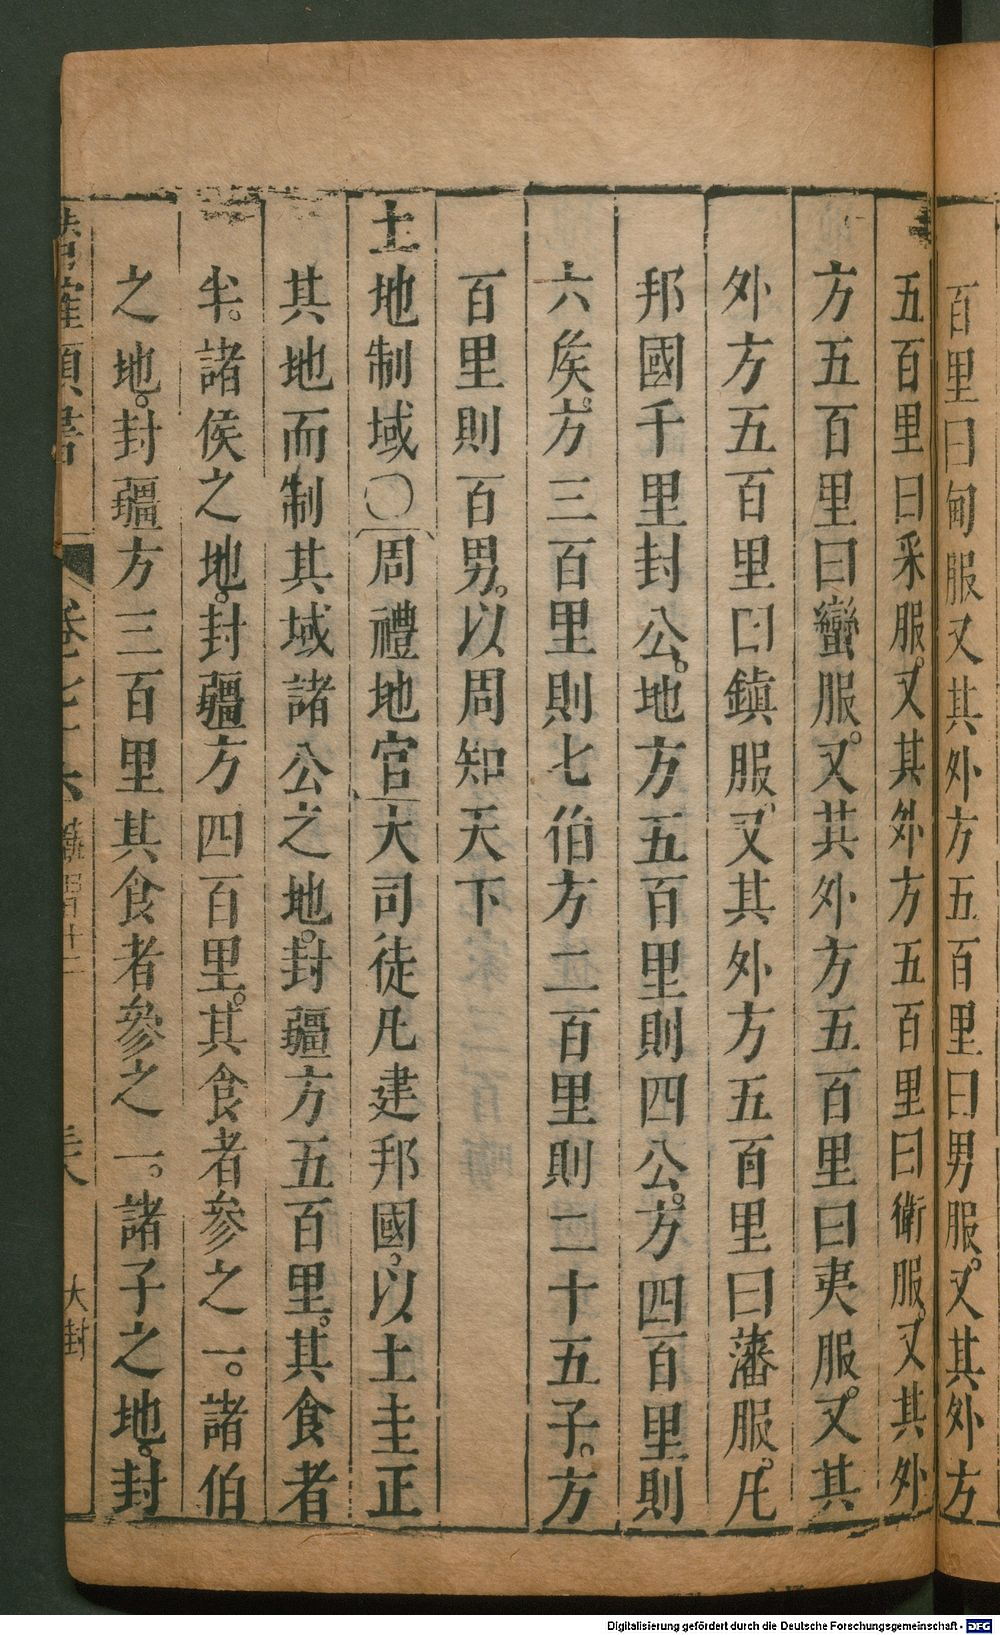 百里曰甸服又其外方五百里曰男服。又其外方
五百里曰采服。又其外方五百里曰衛服。又其外
方五百里曰蠻服。又其外方五百里曰夷服。又其
外方五百里曰鎮服。又其外方五百里曰藩服。凡
邦國千里封公。地方五百里則四公。方四百里則
六矦。方三百里則七伯方二百里則二十五子。方
百里則百男。以周知天下
土地制域〇周禮地官大司徒凡建邦國。以土圭正
其地而制其域諸公之地。封疆方五百里。其食者
半。諸侯之地。封疆方四百里。其食者參之一。諸伯
之地。封疆方三百里其食者參之一。諸子之地。封
類書 卷七十六 大封
Digitalisierung gefördert durch die Deutsche Forschungsgemeinschaft - DFG